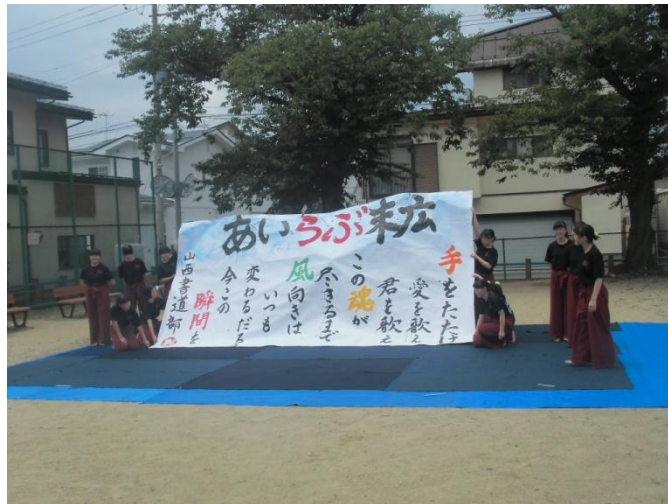 あいらぶ末広
手をたた
愛を歌え
君を歌え
この魂が
尽きるまで
風向きは
いつも
変わるだろ
今この
瞬間を
山西書道部